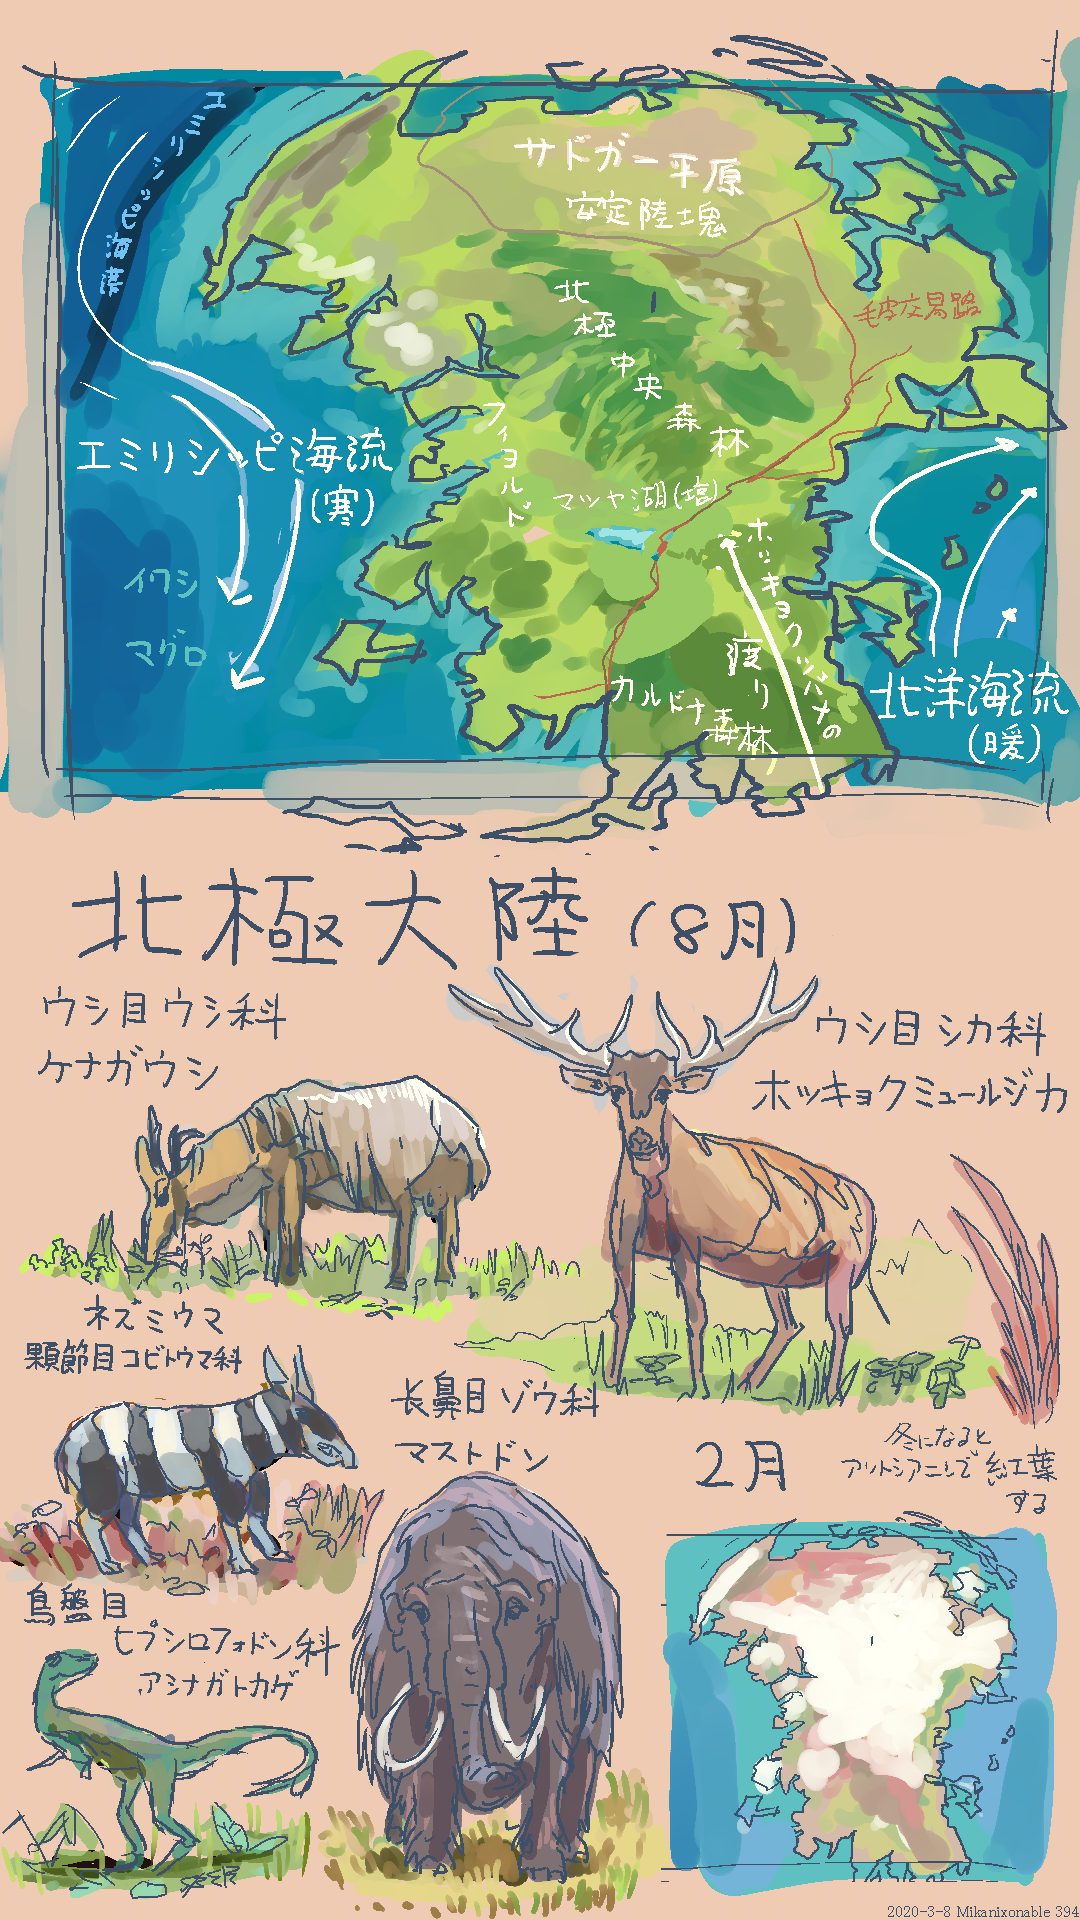 エミリシッピ海溝
サドガー平原
安定陸塊
北極中央森林
毛皮交易路
フィヨルド
エミリシッピ海流
(寒)
イワシ
マグロ
マツヤ湖(塩)
ホッキョクツバナの
渡り
カルドナ森林
北洋海流
(暖)
北極大陸(8月)
ウシ目ウシ科
ケナガウシ
ウシ目シカ科
ホッキョクミュールジカ
ネズミウマ
顆節目コビトウマ科
長鼻目ゾウ科
マストドン
冬になると
アリトシアニンで紅葉
する
2月
鳥盤目
ヒプシロフォドン科
アシナガトカゲ
2020-3-8 Mikanixonable 394